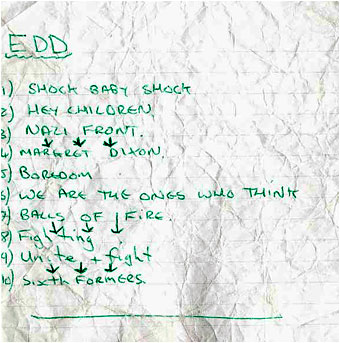 EDD
1) SHOCK BABY SHOCK
2) HEY CHILDREN
3) NAZI FRONT.
4) MARGRET DIXON.
5) BOREDOM
6) WE ARE THE ONES WHO THINK
7) BALLS OF FIRE.
8) Fighting
9) Unite + fight
10) Sixth FORMERS.